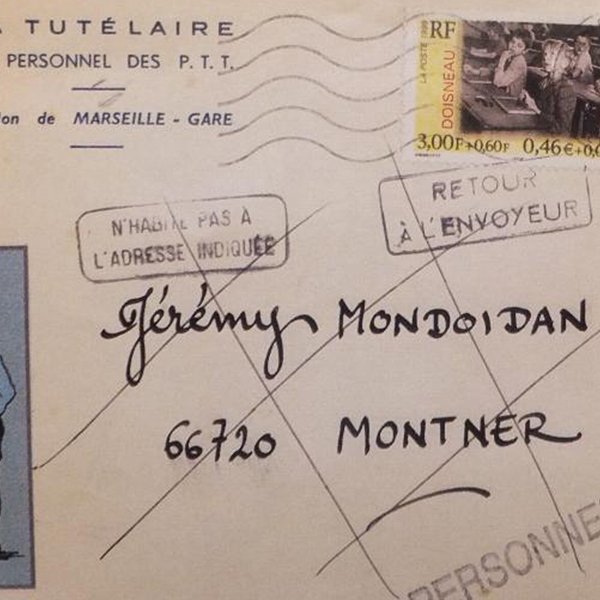 A TUTÉLAIRE
PERSONNEL DES P.T.T.
ion de MARSEILLE - GARE
RF
LA POSTE 1999
DOISNEAU
3,00F+0,60F 0,46€+0,0
N'HABITE PAS À
L'ADRESSE INDIQUÉE
RETOUR
À L'ENVOYEUR
Jérémy MONDOIDAN
66720 MONTNER
PERSONNE